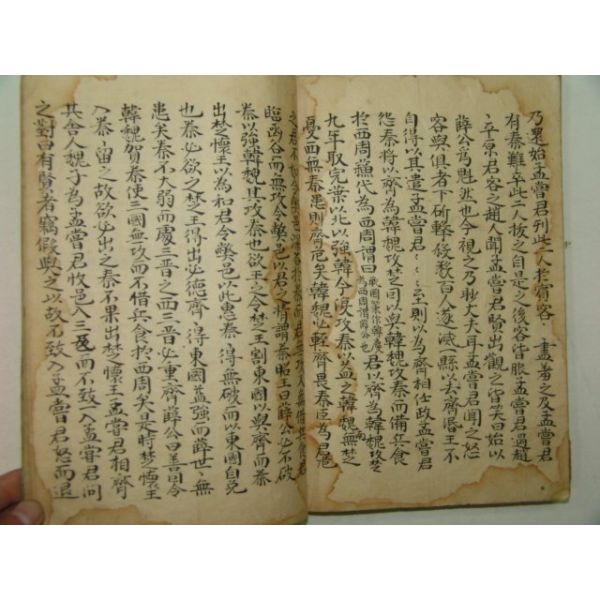 乃還始孟嘗君列此二人於賓客賓客盡羞之及孟嘗君
有秦難卒此二人拔之自是之後客皆服孟嘗君過趙
平原君客之趙人聞孟嘗君賢出觀之皆笑曰始以
薛公為魁然也今視之乃眇丈夫耳孟嘗君聞之怒
客與俱者下斫擊殺數百人遂滅一縣以去齊湣王不
自得以其遣孟嘗君孟嘗君至則以為齊相任政孟嘗君
怨秦將以齊為韓魏攻楚因以與韓魏攻秦而借兵食
於西周蘇代為西周謂曰君以齊為韓魏攻楚
九年取宛葉以北以強韓今復攻秦以益之韓魏南無楚
憂西無秦患則齊危矣韓魏必輕齊畏秦臣為君危
臨函谷而無攻令弊邑以君之情謂秦昭王曰薛公必不破
秦以強韓魏其攻秦也欲王之令楚王割東國以與齊而秦
出楚懷王以為和君令弊邑以此惠秦得無破而以東國自免
也秦必欲之楚王得出必德齊得東國益強而薛世世無
患矣秦不大弱而處三晉之西三晉必重齊薛公曰善因令
韓魏賀秦使三國無攻而不借兵食於西周矣是時楚懷王
入秦秦留之故欲必出之秦不果出楚懷王孟嘗君相齊
其舍人魏子為孟嘗君收邑入三反而不致一入孟嘗君問
之對曰有賢者竊假與之以故不致入孟嘗君怒而退